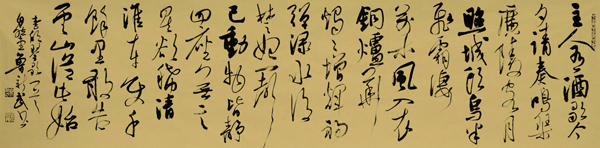 主人有酒歡今
夕請奏鳴琴
廣陵客月
照城頭烏半
飛霜淒
萬木風入衣
銅爐華
燭〻增輝初
彈淥水後
楚妃一聲
已動物皆靜
四座無言
星欲稀清
淮奉使千
餘里敢告
雲山從此始